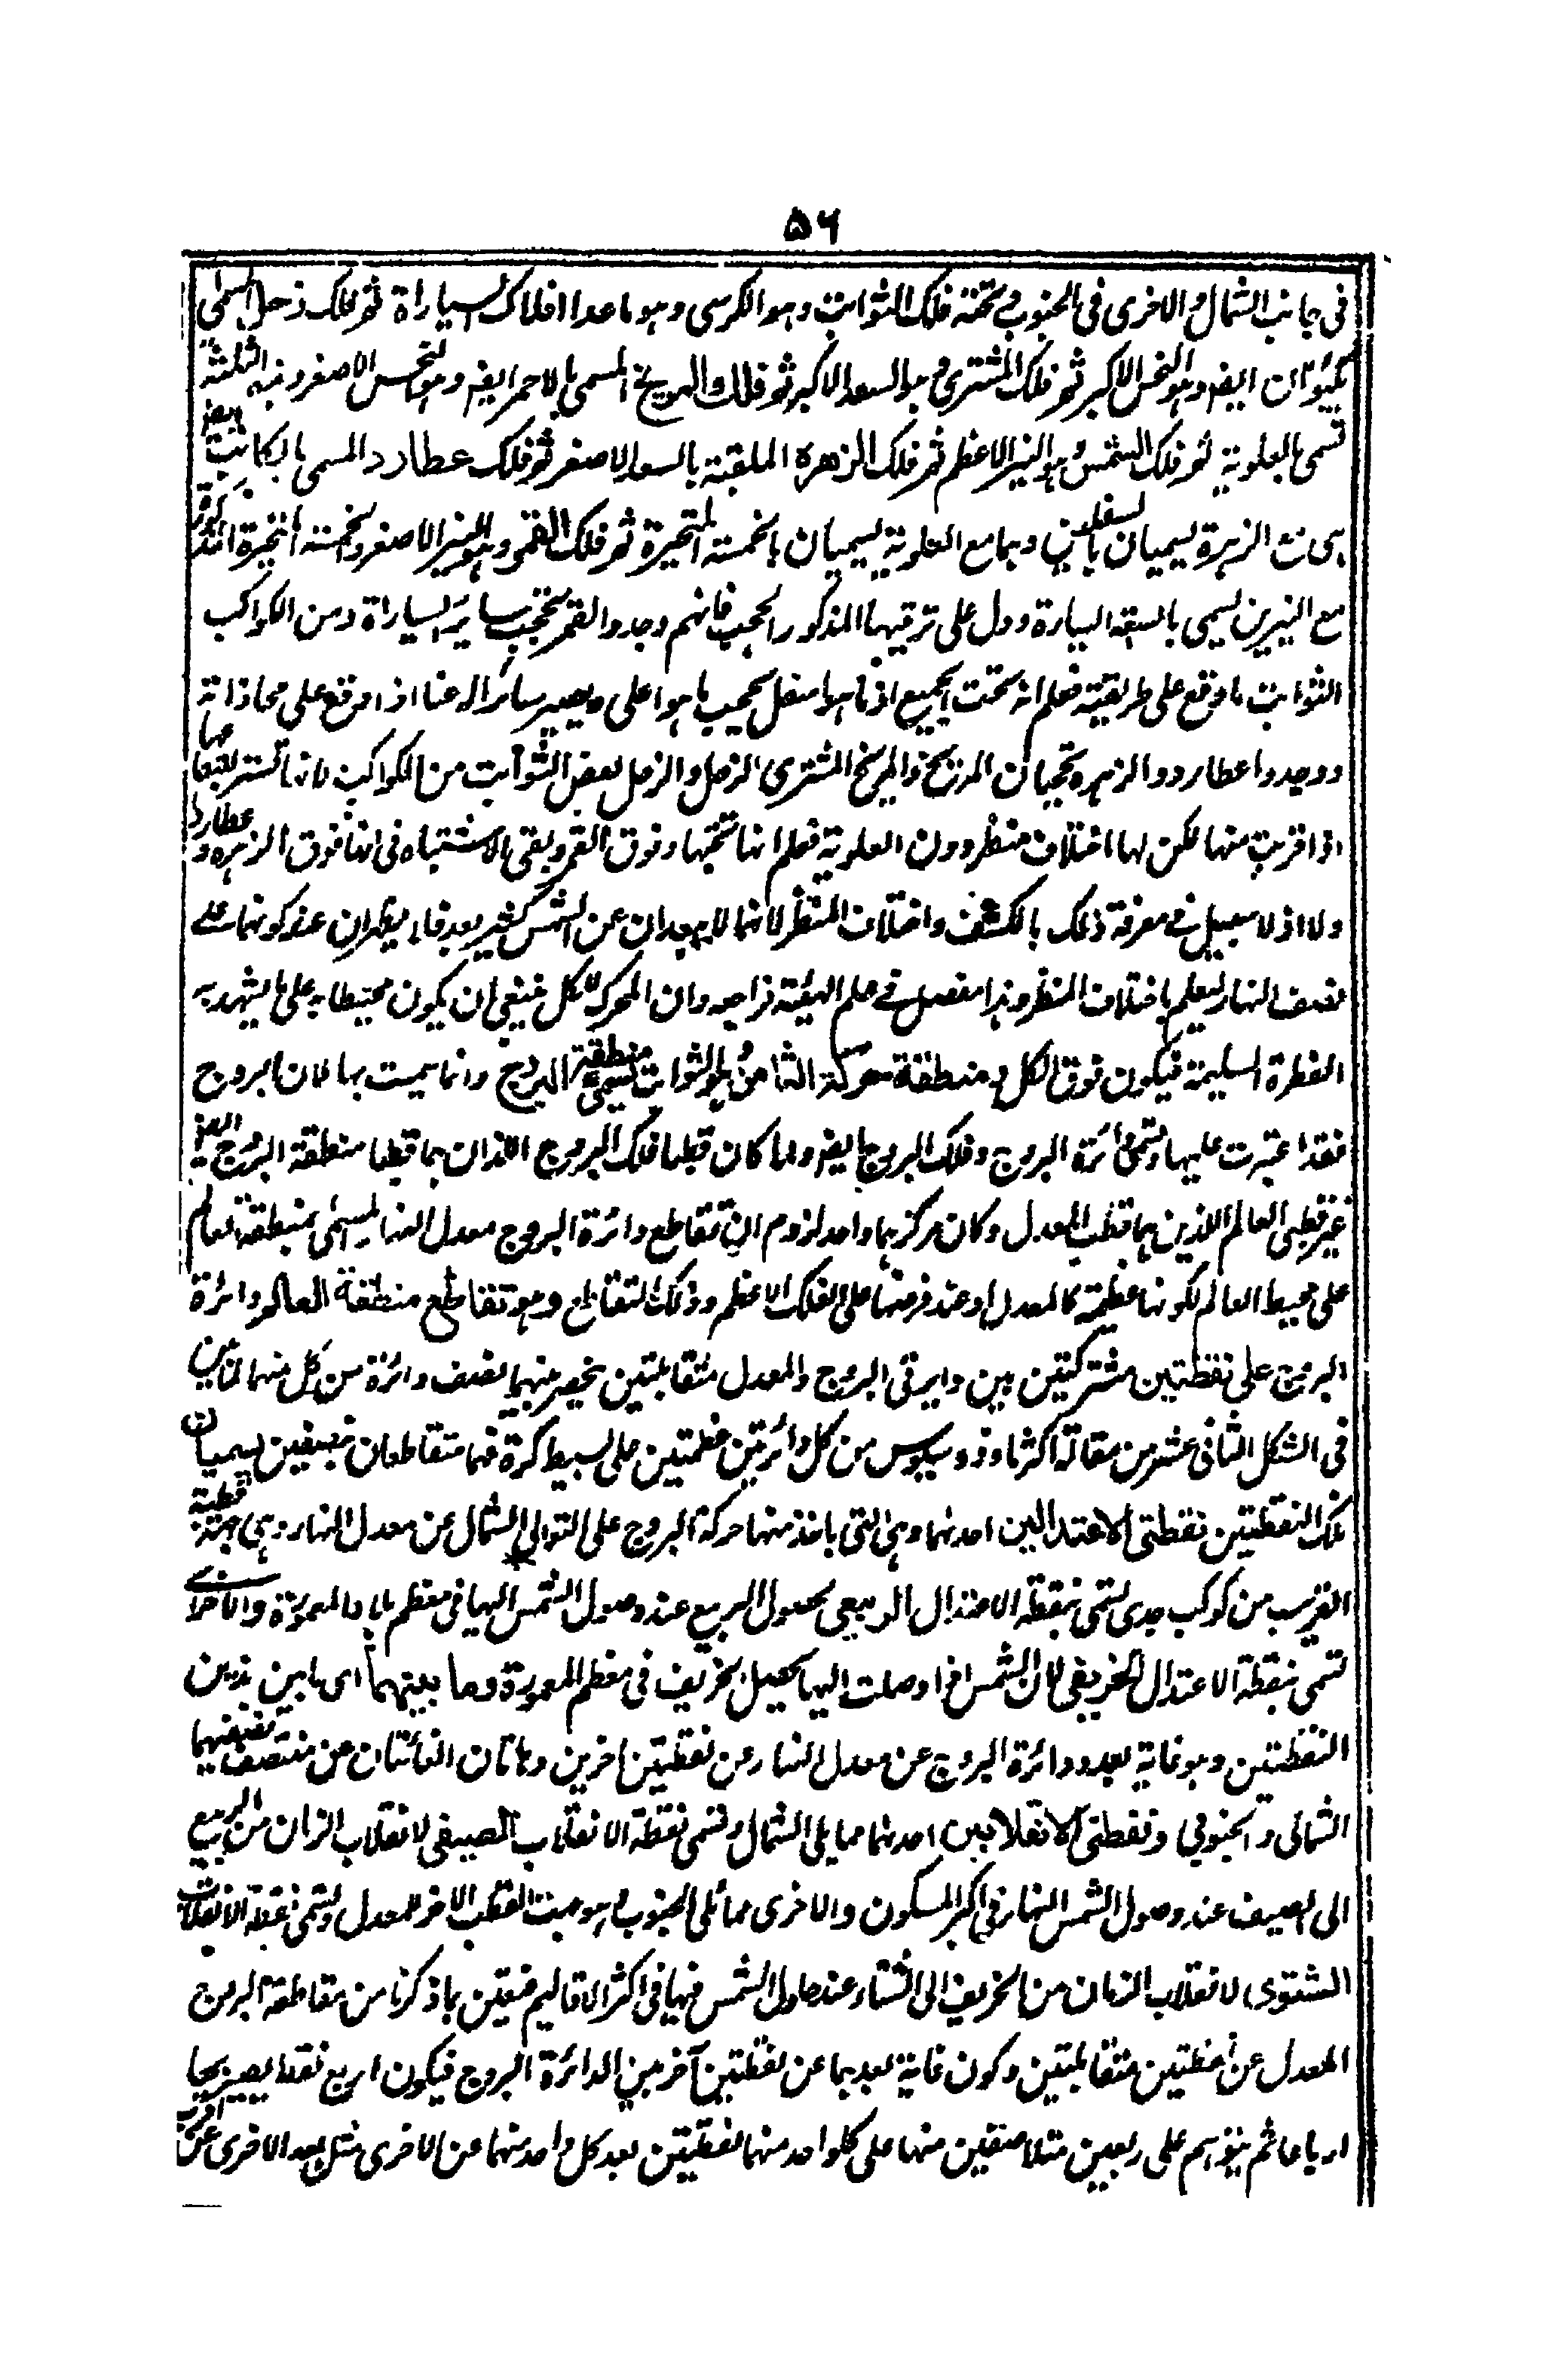 ۵۶
فی جانب الشمال والاخری فی الجنوب وتحته فلک الثوابت وہو الکرسی وہو ما عدا افلاک السیاراة ثم فلک زحل المسمی
بکیوان ایضہ وہو النحس الاکبر ثم فلک المشتری وہو السعد الاکبر ثم فلک المریخ المسمی بالاحمر ایضہ وہو النحس الاصغر وہذہ الثلثة
تسمی بالعلویة ثم فلک الشمس وہو النیر الاعظم ثم فلک الزهرة الملقبة بالسعد الاصغر ثم فلک عطارد المسمی بالکاتب ایضہ
ہی مع الزہرة یسمیان بالسفلیین وہما مع العلویة یسمیان بالخمسة المتحیرة ثم فلک القمر وہو النیر الاصغر والخمسة المتحیرة المذکورة
مع النیرین یسمی بالسبعة السیارة ودل علی ترتیبها المذکور الحجب فانہم وجدوا القمر یحجب سایر السیاراة ومن الکواکب
الثوابت ما وقع علی طریقته فعلم انه تحت الجمیع اذ ما ہو اسفل یحجب ما ہو اعلی ویصیر ساترا له عنا اذا وقع علی محاذاته
ووجدوا عطارد والزہرہ یحجبان المریخ والمریخ المشتری والمشتری الزحل والزحل بعض الثوابت من الکواکب لانها تستر بعضها
اذا قربت منها لکن لها اختلاف منظر دون العلویة فعلم انها تحتها وفوق القمر وبقی الاشتباہ فی انها فوق الزہرہ وعطارد
ولا اذ لا سبیل فی معرفة ذلک بالکسف واختلاف المنظر لانهما لا یبعدان عن الشمس کثیر بعد فلا یظہران عند کونهما علی
نصف النہار لیعلم باختلاف المنظر وہذا مفصل فی علم الہیئة فراجعه وان المحرک للکل ینبغی ان یکون محیطا به علی ما یشہد به
الفطرة السلیمة فیکون فوق الکل و منطقة حرکة الثامن وہو الثوابت یسمی منطقة البروج وانما سمیت بها لان البروج
فقد اعتبرت علیها وتسمی دائرة البروج وفلک البروج ایضہ ولما کان قطبا فلک البروج اللذان ہما قطبا منطقة البروج ایضہ
غیر قطبی العالم اللذین ہما قطب المعدل وکان مرکز ہما واحد لزوم ان تقاطع دائرة البروج معدل النہار المسمی بمنطقة العالم
علی محیط العالم لکونها عظیمة کالمعدل او عند فرضها علی الفلک الاعظم وذلک التقاطع وہو تقاطع منطقة العالم ودائرة
البروج علی نقطتین مشترکتین بین دایرتی البروج والمعدل متقابلتین ینحصر بینہما نصف دائرة من کل منهما لما بین
فی الشکل الثانی عشر من مقالة اکر ثاوذوسیوس من کل دائرتین عظمتین علی بسیط کرة فهما متقاطعان نصفین یسمیان
تلک النقطتین نقطتی الاعتدالین احدىهما وہی التی یاخذ منها حرکة البروج علی التوالی الی الشمال عن معدل النہار وہی جهة قطبة
القریب من کوکب جدی تسمی نقطة الاعتدال الربیعی لحصول الربیع عند وصول الشمس الیها فی معظم بلاد المعمورة والاخری
تسمی نقطة الاعتدال الخریفی لان الشمس اذا وصلت الیها یحصل الخریف فی معظم المعمورة وما بینهما ای ما بین ہذین
النقطتین وہو غایة بعد دائرة البروج عن معدل النہار عن نقطتین اخرین وہاتان الغائتان من منتصف نصفیہما
الشمالی والجنوبی ونقطتی الانقلابین احدىهما مما یلی الشمال وتسمی نقطة الانقلاب الصیفی لانقلاب الزمان من الربیع
الی الصیف عند وصول الشمس الیها فی اکثر المسکون والاخری مما یلی الجنوب وہو سمت القطب الاخر للمعدل وتسمی نقطة الانقلاب
الشتوی لانقلاب الزمان من الخریف الی الشتاء عند حلول الشمس فیها فی اکثر الاقالیم فتعین بما ذکرنا من مقاطعة البروج
المعدل عن نقطتین متقابلتین وکون غایة بعدہما عن نقطتین آخر من الدائرة البروج فیکون اربع نقط یصیر بها
ارباعا ثم یتوہم علی ربعین متلاصقین منها علی کلواحد منهما نقطتین بعد کل واحد منهما عن الاخری مثل بعد الاخری عن اقرب